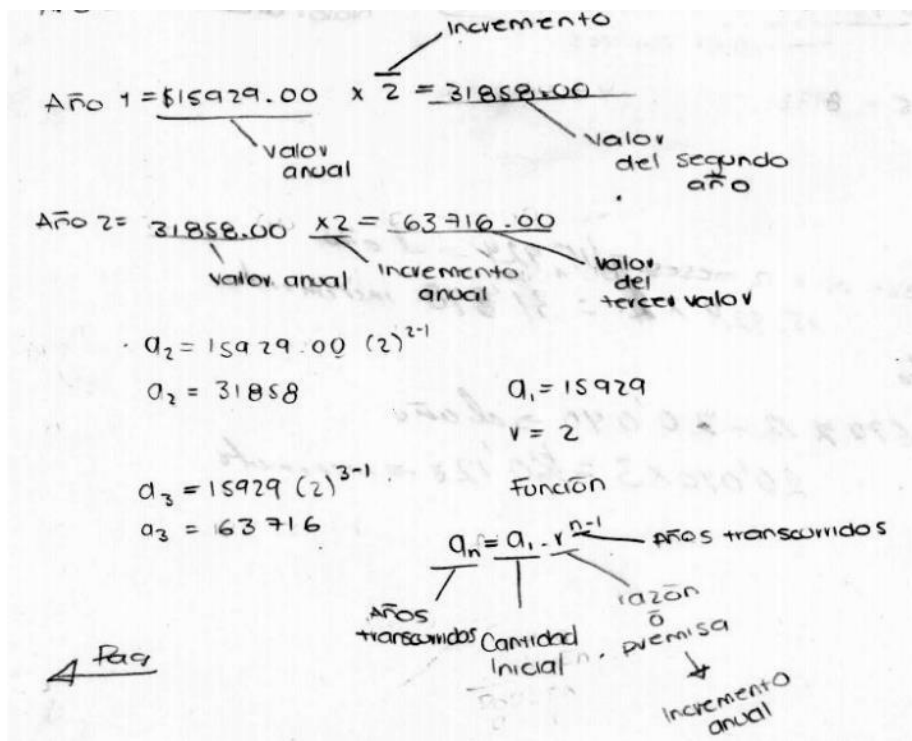 Incremento
Año 1 = $15929.00 x 2 = 31858.00
valor anual
valor del segundo año
Año 2= 31858.00 x2 = 63716.00
valor anual
incremento anual
valor del tercer valor
a₂ = 15929.00 (2)²⁻¹
a₂ = 31858
a₁ = 15929
r = 2
a₃ = 15929 (2)³⁻¹
a₃ = 63716
Función
aₙ = a₁ . rⁿ⁻¹
Años transcurridos
Años transcurridos
Cantidad Inicial
razón ó premisa
Incremento anual